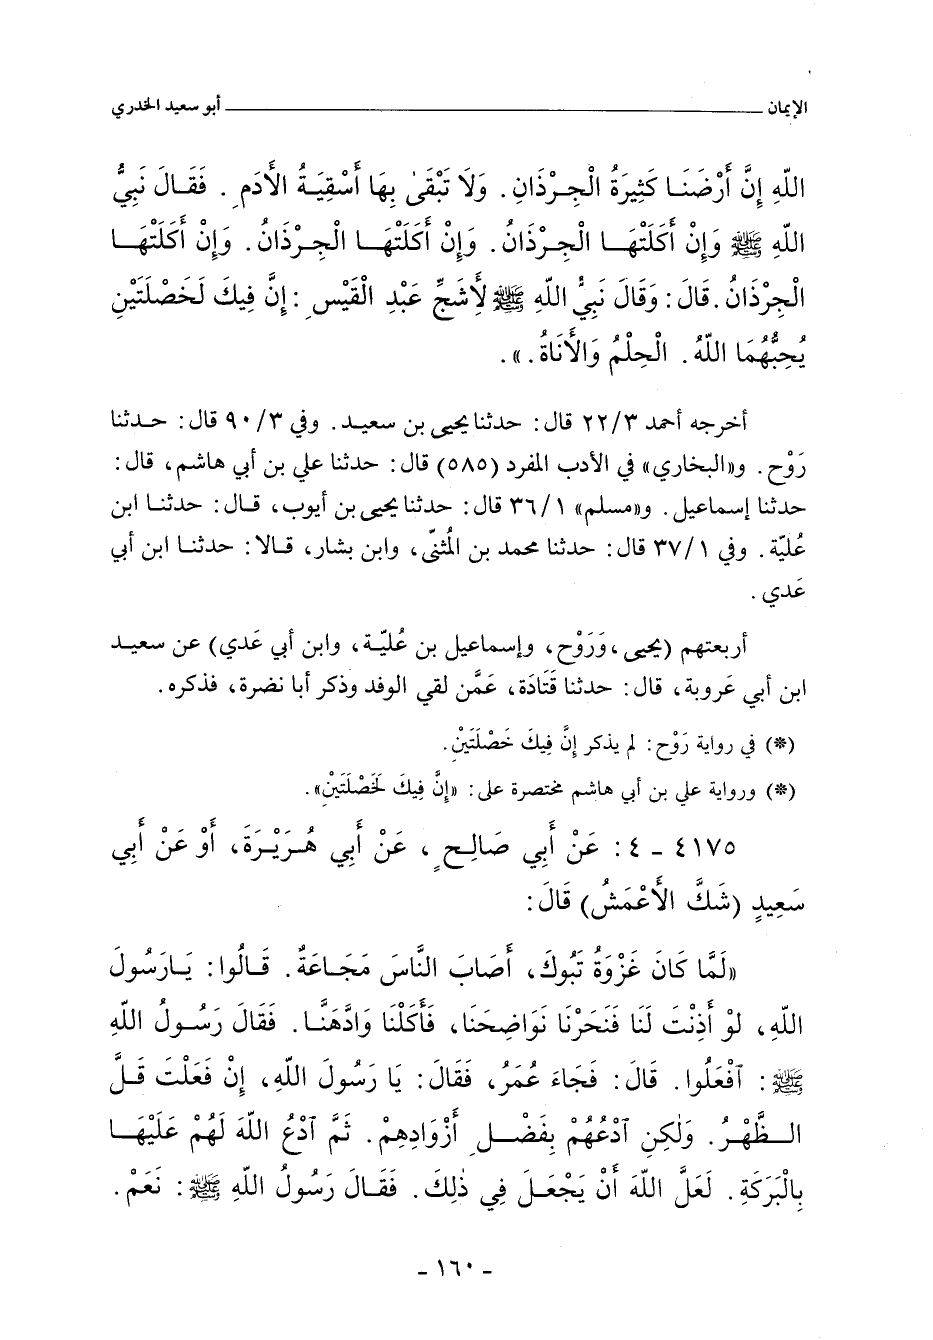 الإيمان ـــــــــــــــــ أبو سعيد الخدري
اللهِ إِنَّ أَرْضَنَا كَثِيرَةُ الْجِرْذَانِ. وَلَا تَبْقَىٰ بِهَا أَسْقِيَةُ الأَدَمِ. فَقَالَ نَبِيُّ
اللهِ ﷺ وَإِنْ أَكَلَتْهَا الْجِرْذَانُ. وَإِنْ أَكَلَتْهَا الْجِرْذَانُ. وَإِنْ أَكَلَتْهَا
الْجِرْذَانُ. قَالَ: وَقَالَ نَبِيُّ اللهِ ﷺ لِأَشَجِّ عَبْدِ الْقَيْسِ: إِنَّ فِيكَ لَخَصْلَتَيْنِ
يُحِبُّهُمَا اللهُ. الْحِلْمُ وَالأَنَاةُ.».
أخرجه أحمد ٢٢/٣ قال: حدثنا يحيى بن سعيد. وفي ٩٠/٣ قال: حدثنا
رَوْح. و«البخاري» في الأدب المفرد (٥٨٥) قال: حدثنا علي بن أبي هاشم، قال:
حدثنا إسماعيل. و«مسلم» ٣٦/١ قال: حدثنا يحيى بن أيوب، قال: حدثنا ابن
عُليّة. وفي ٣٧/١ قال: حدثنا محمد بن المُثنّى، وابن بشار، قالا: حدثنا ابن أبي
عَدي.
أربعتهم (يحيى، وَرَوْح، وإسماعيل بن عُليّة، وابن أبي عَدي) عن سعيد
ابن أبي عَروبة، قال: حدثنا قَتَادَة، عَمَّن لقي الوفد وذكر أبا نضرة، فذكره.
(*) في رواية رَوْح: لم يذكر إِنَّ فِيكَ خَصْلَتَيْنِ.
(*) ورواية علي بن أبي هاشم مختصرة على: «إِنَّ فِيكَ لَخَصْلَتَيْنِ».
٤١٧٥ ـ ٤: عَنْ أَبِي صَالِحٍ، عَنْ أَبِي هُرَيْرَةَ، أَوْ عَنْ أَبِي
سَعِيدٍ (شَكَّ الأَعْمَشُ) قَالَ:
«لَمَّا كَانَ غَزْوَةُ تَبُوكَ، أَصَابَ النَّاسَ مَجَاعَةٌ. قَالُوا: يَارَسُولَ
اللهِ، لَوْ أَذِنْتَ لَنَا فَنَحَرْنَا نَوَاضِحَنَا، فَأَكَلْنَا وَادَّهَنَّا. فَقَالَ رَسُولُ اللهِ
ﷺ: ٱفْعَلُوا. قَالَ: فَجَاءَ عُمَرُ، فَقَالَ: يَا رَسُولَ اللهِ، إِنْ فَعَلْتَ قَلَّ
الظَّهْرُ. وَلٰكِنِ ٱدْعُهُمْ بِفَضْلِ أَزْوَادِهِمْ. ثُمَّ ٱدْعُ اللهَ لَهُمْ عَلَيْهَا
بِالْبَرَكَةِ. لَعَلَّ اللهَ أَنْ يَجْعَلَ فِي ذٰلِكَ. فَقَالَ رَسُولُ اللهِ ﷺ: نَعَمْ.
- ١٦٠ -